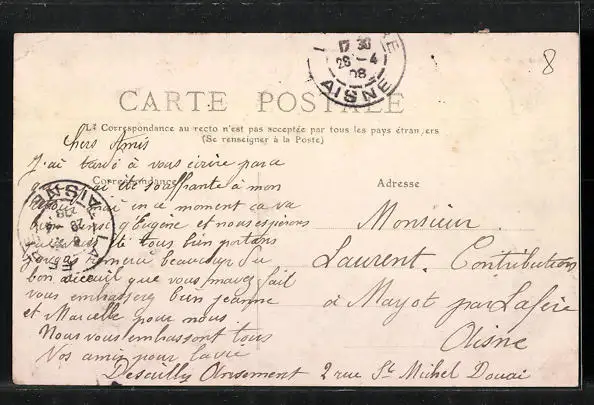 8
17 30
28 - 4
08
AISNE
CARTE POSTALE
La Correspondance au recto n'est pas acceptée par tous les pays étrangers
(Se renseigner à la Poste)
Correspondance
Adresse
Chers Amis
J'ai tardé à vous écrire parce
que j'ai été souffrante à mon
en ce moment ca va
bien ainsi qu'Eugène et nous espérons
tous bien portans
beaucoup du
bon accueil que vous mavez fait
vous embrasserez bien jeanne
et Marcelle pour nous
Nous vous embrassont tous
Vos amis pour la vie
Ansement 2 rue St Michel Douai
Monsieur
Laurent. Contributions
à Mayot par Lafère
Aisne
LA FÈRE
AISNE